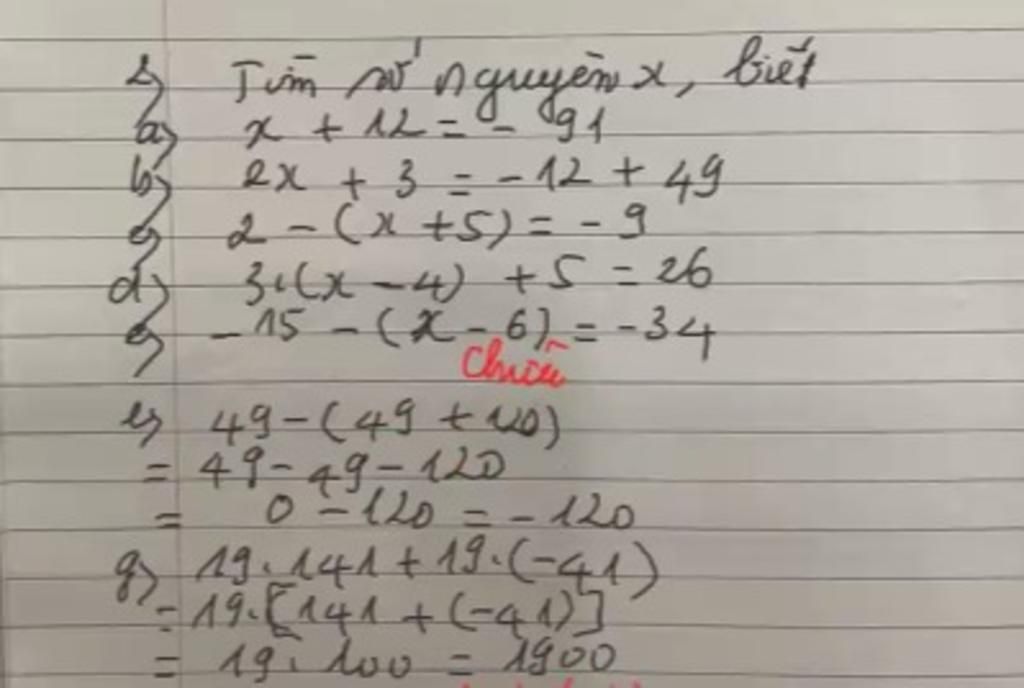 2) Tìm số nguyên x, biết
a) x + 12 = - 91
b) 2x + 3 = -12 + 49
c) 2 - (x + 5) = - 9
d) 3.(x - 4) + 5 = 26
e) -15 - (x - 6) = -34
e) 49 - (49 + 120)
= 49 - 49 - 120
= 0 - 120 = - 120
g) 19.141 + 19.(-41)
= 19.[141 + (-41)]
= 19.100 = 1900